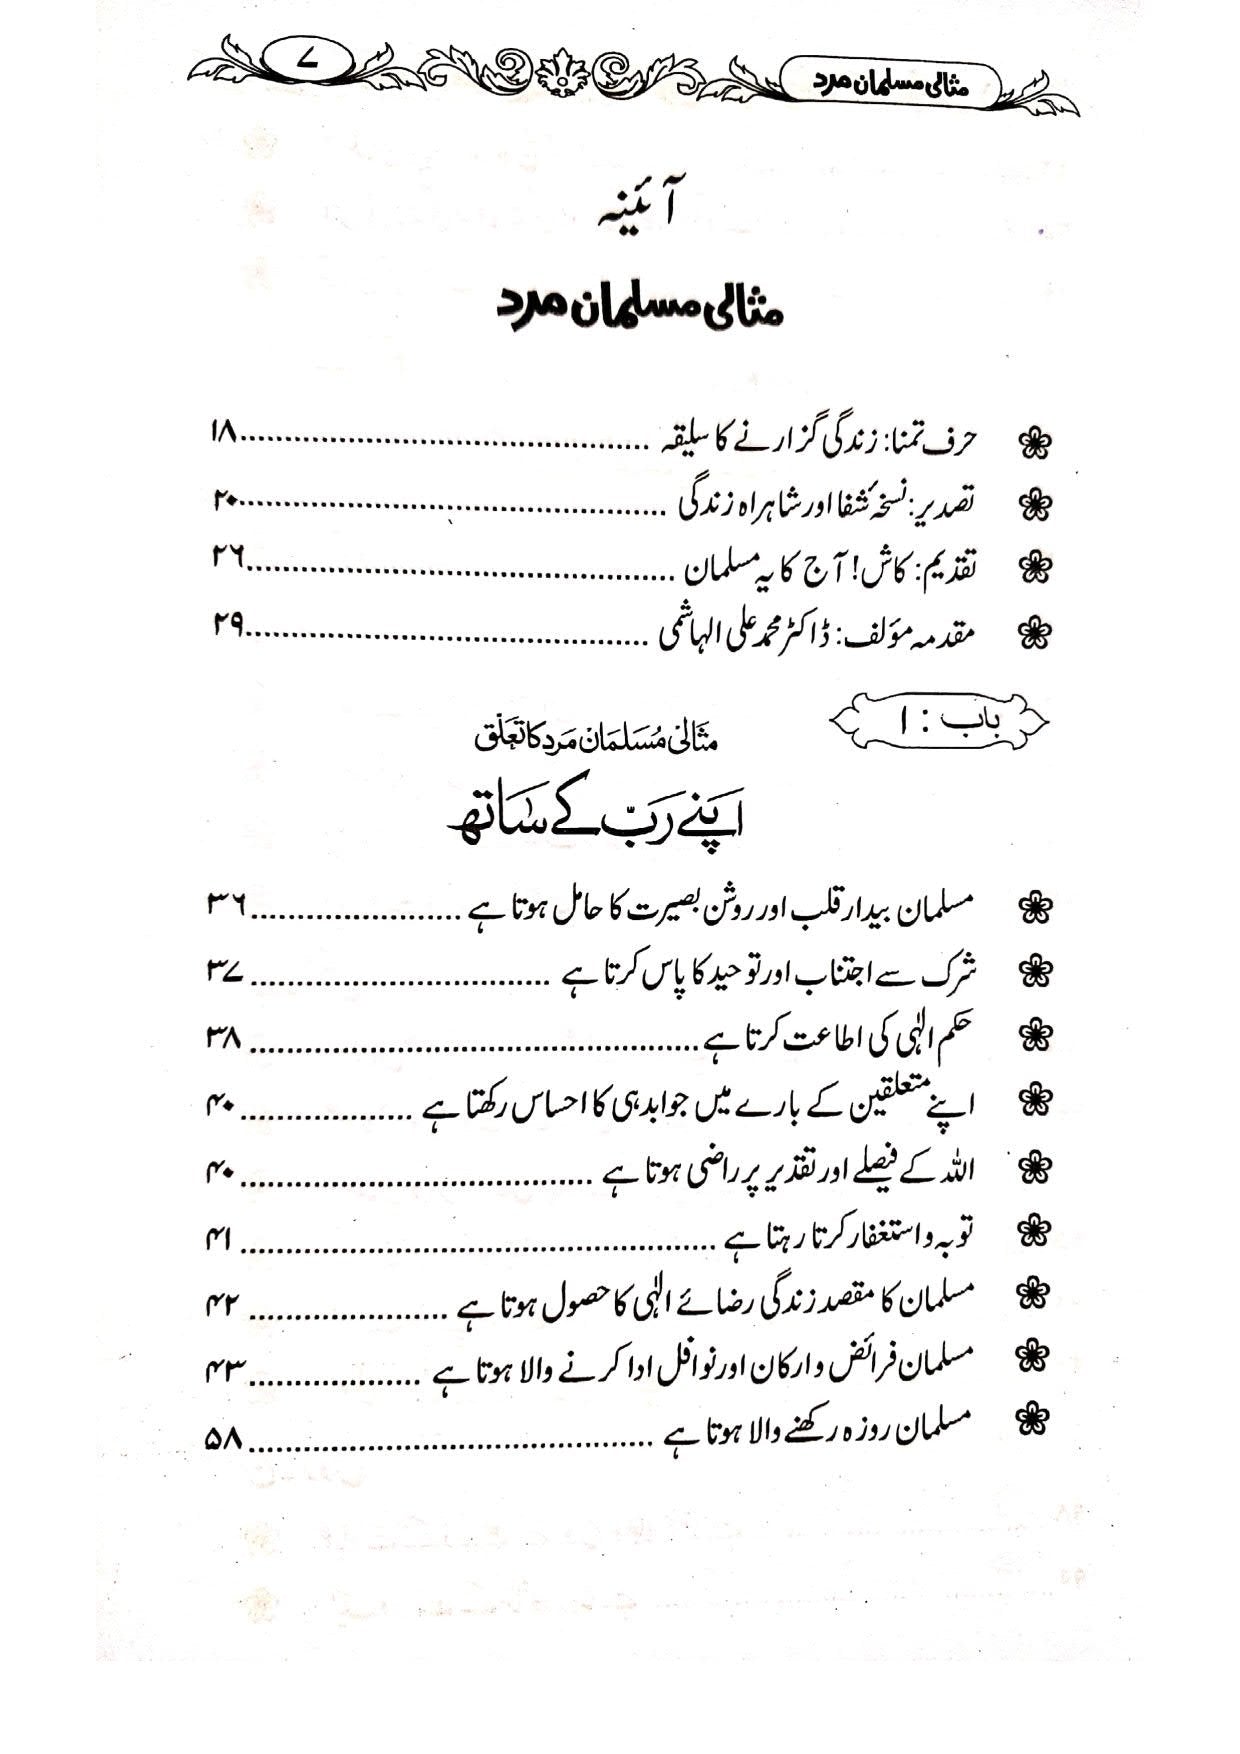 مثالی مسلمان مرد ۷
آئینہ
مثالی مسلمان مرد
حرف تمنا: زندگی گزارنے کا سلیقہ ............ ۱۸
تصدیر: نسخۂ شفا اور شاہراہ زندگی ............ ۲۰
تقدیم: کاش! آج کا یہ مسلمان ............ ۲۶
مقدمہ مؤلف: ڈاکٹر محمد علی الہاشمی ............ ۲۹
باب : ۱
مثالی مسلمان مرد کا تعلق
اپنے رَبّ کے ساتھ
مسلمان بیدار قلب اور روشن بصیرت کا حامل ہوتا ہے ............ ۳۶
شرک سے اجتناب اور توحید کا پاس کرتا ہے ............ ۳۷
حکم الٰہی کی اطاعت کرتا ہے ............ ۳۸
اپنے متعلقین کے بارے میں جوابدہی کا احساس رکھتا ہے ............ ۴۰
اللہ کے فیصلے اور تقدیر پر راضی ہوتا ہے ............ ۴۰
توبہ و استغفار کرتا رہتا ہے ............ ۴۱
مسلمان کا مقصد زندگی رضائے الٰہی کا حصول ہوتا ہے ............ ۴۲
مسلمان فرائض و ارکان اور نوافل ادا کرنے والا ہوتا ہے ............ ۴۳
مسلمان روزہ رکھنے والا ہوتا ہے ............ ۵۸